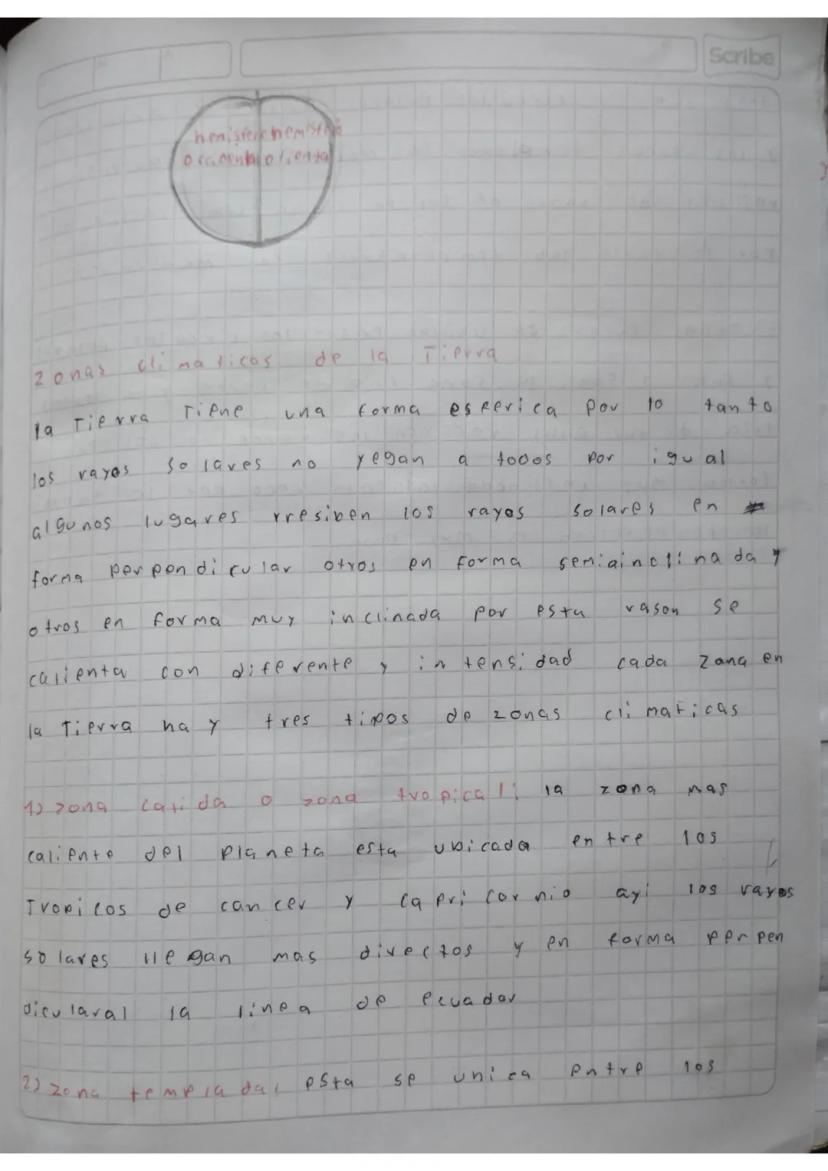 Scribe
hemisferi hemisferio
occidental oriental
Zonas climaticas de la Tierra
la Tierra Tiene una forma esferica por lo tanto
los rayos solares no yegan a todos por igual
algunos lugares rresiben los rayos solares en
forma perpendicular otros en forma semiainclinada y
otros en forma muy inclinada por esta rason se
calienta con diferente y intensidad cada zona en
la Tierra hay tres tipos de zonas climaticas
1) zona calida o zona tropical: la zona mas
caliente del planeta esta ubicada entre los
Tropicos de cancer y capricornio ayi los rayos
solares llegan mas directos y en forma perpen
dicularal la linea de Ecuador
2) zona templada: esta se unica entre los